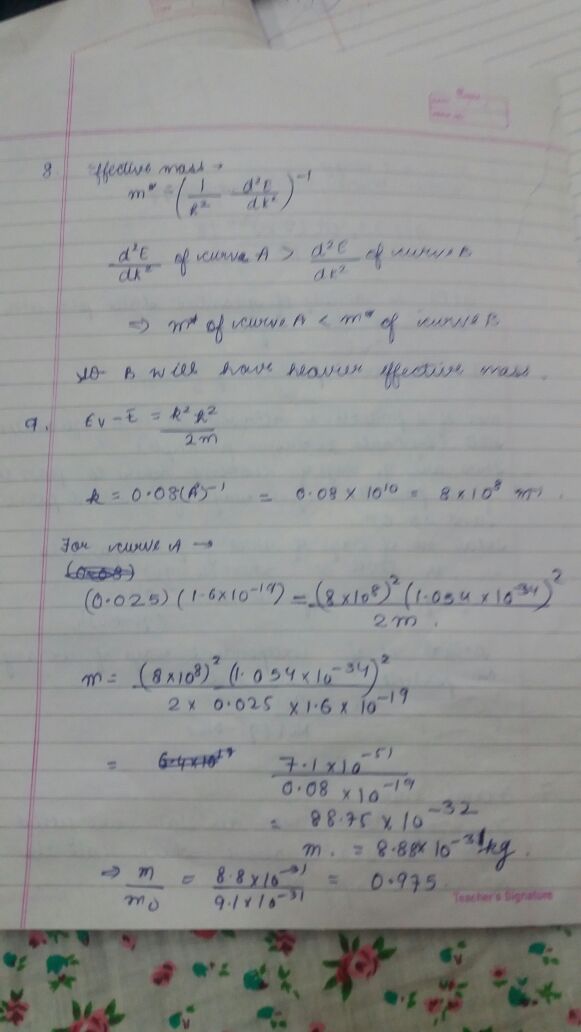 8 Effective mass →
m* = (1/ħ² d²E/dk²)⁻¹
d²E/dk² of curve A > d²E/dk² of curve B
⇒ m* of curve A < m* of curve B
so B will have heavier effective mass.
9. Ev - E = k²ħ²/2m
k = 0.08(A°)⁻¹ = 0.08 × 10¹⁰ = 8 × 10⁸ m⁻¹
For curve A →
(0.025) (1.6×10⁻¹⁹) = (8×10⁸)² (1.054 × 10⁻³⁴)² / 2m.
m = (8×10⁸)² (1.054×10⁻³⁴)² / 2 × 0.025 × 1.6 × 10⁻¹⁹
= 7.1×10⁻⁵¹ / 0.08 × 10⁻¹⁹
= 88.75 × 10⁻³²
m. = 8.88× 10⁻³¹ kg.
⇒ m/m₀ = 8.8×10⁻³¹ / 9.1×10⁻³¹ = 0.975
Teacher's Signature